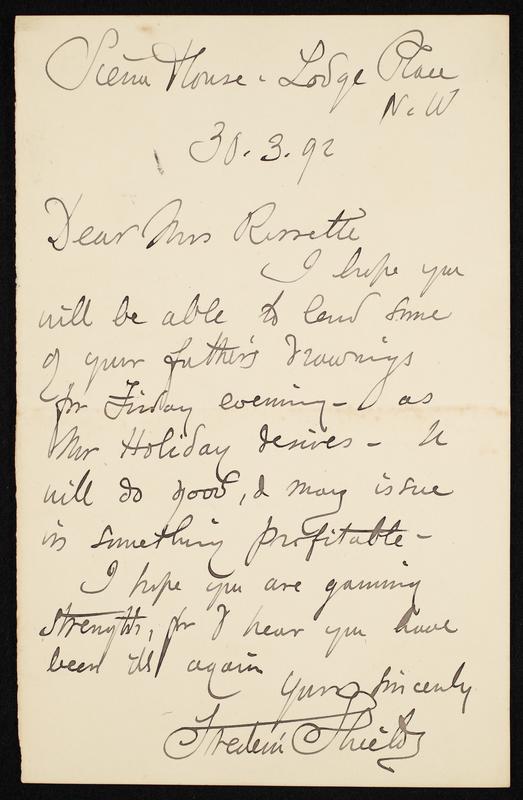 Siena House. Lodge Place
N.W
30.3.92
Dear Mrs Rossetti
I hope you
will be able to lend some
of your father's drawings
for Friday evening - as
Mr Holiday desires - It
will do good, & may issue
in something profitable -
I hope you are gaining
strength, for I hear you have
been ill again
Yours sincerely
Frederic Shields